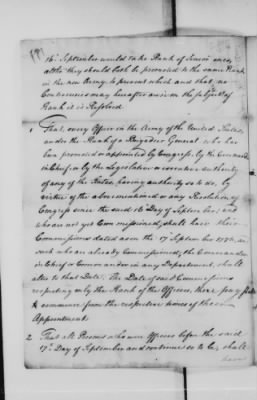 16th September would take Rank of Senior ones,
altho' they should both be promoted to the same Rank
in the new Army; to prevent which and that no
Controversies may hereafter arise on the subject of
Rank it is Resolved
1. That, every Officer in the Army of the United States,
under the Rank of a Brigadier General who has
been promoted or appointed by Congress, by the Command
in Chief, in by the Legislature or executive Authority
of any of the States, having authority so to do, by
virtue of the abovementioned or any Resolution of
Congress since the said 16 Day of September; and
who are not yet Commissioned, shall have their
Commissions dated as on the 17th September 1776, as
such who are already Commissioned, the Commander
in Chief or Commander in any Department shall
alter to that Date; The Date of such Commissions
respecting only the Rank of the Officers, their pay shall
commence from the respective times of their
Appointment.
2 That all Persons who were Officers before the said
17th Day of September and continue so to be, shall
have